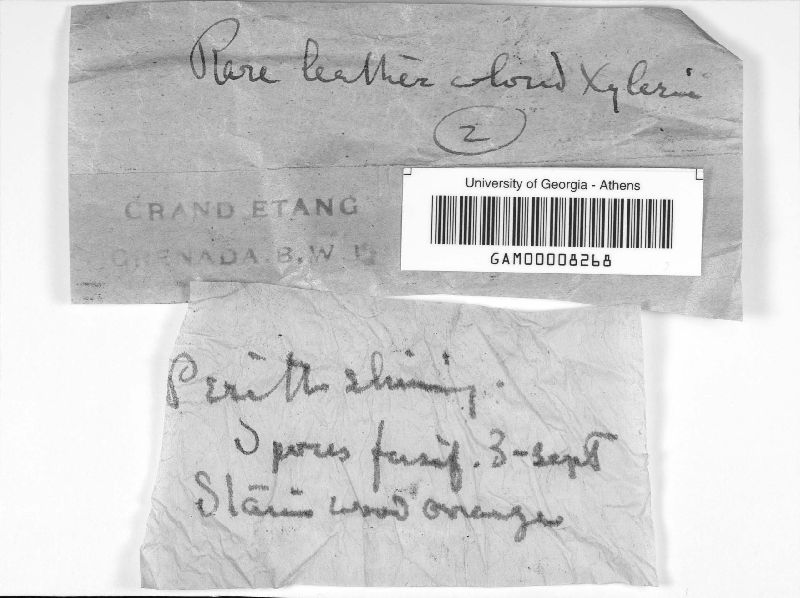 Rare leather colored Xylaria
2
University of Georgia - Athens
GAM00008268
GRAND ETANG
GRENADA. B. W. I.
Perith shining.
Spores fusif. 3-sept
Stains wood orange